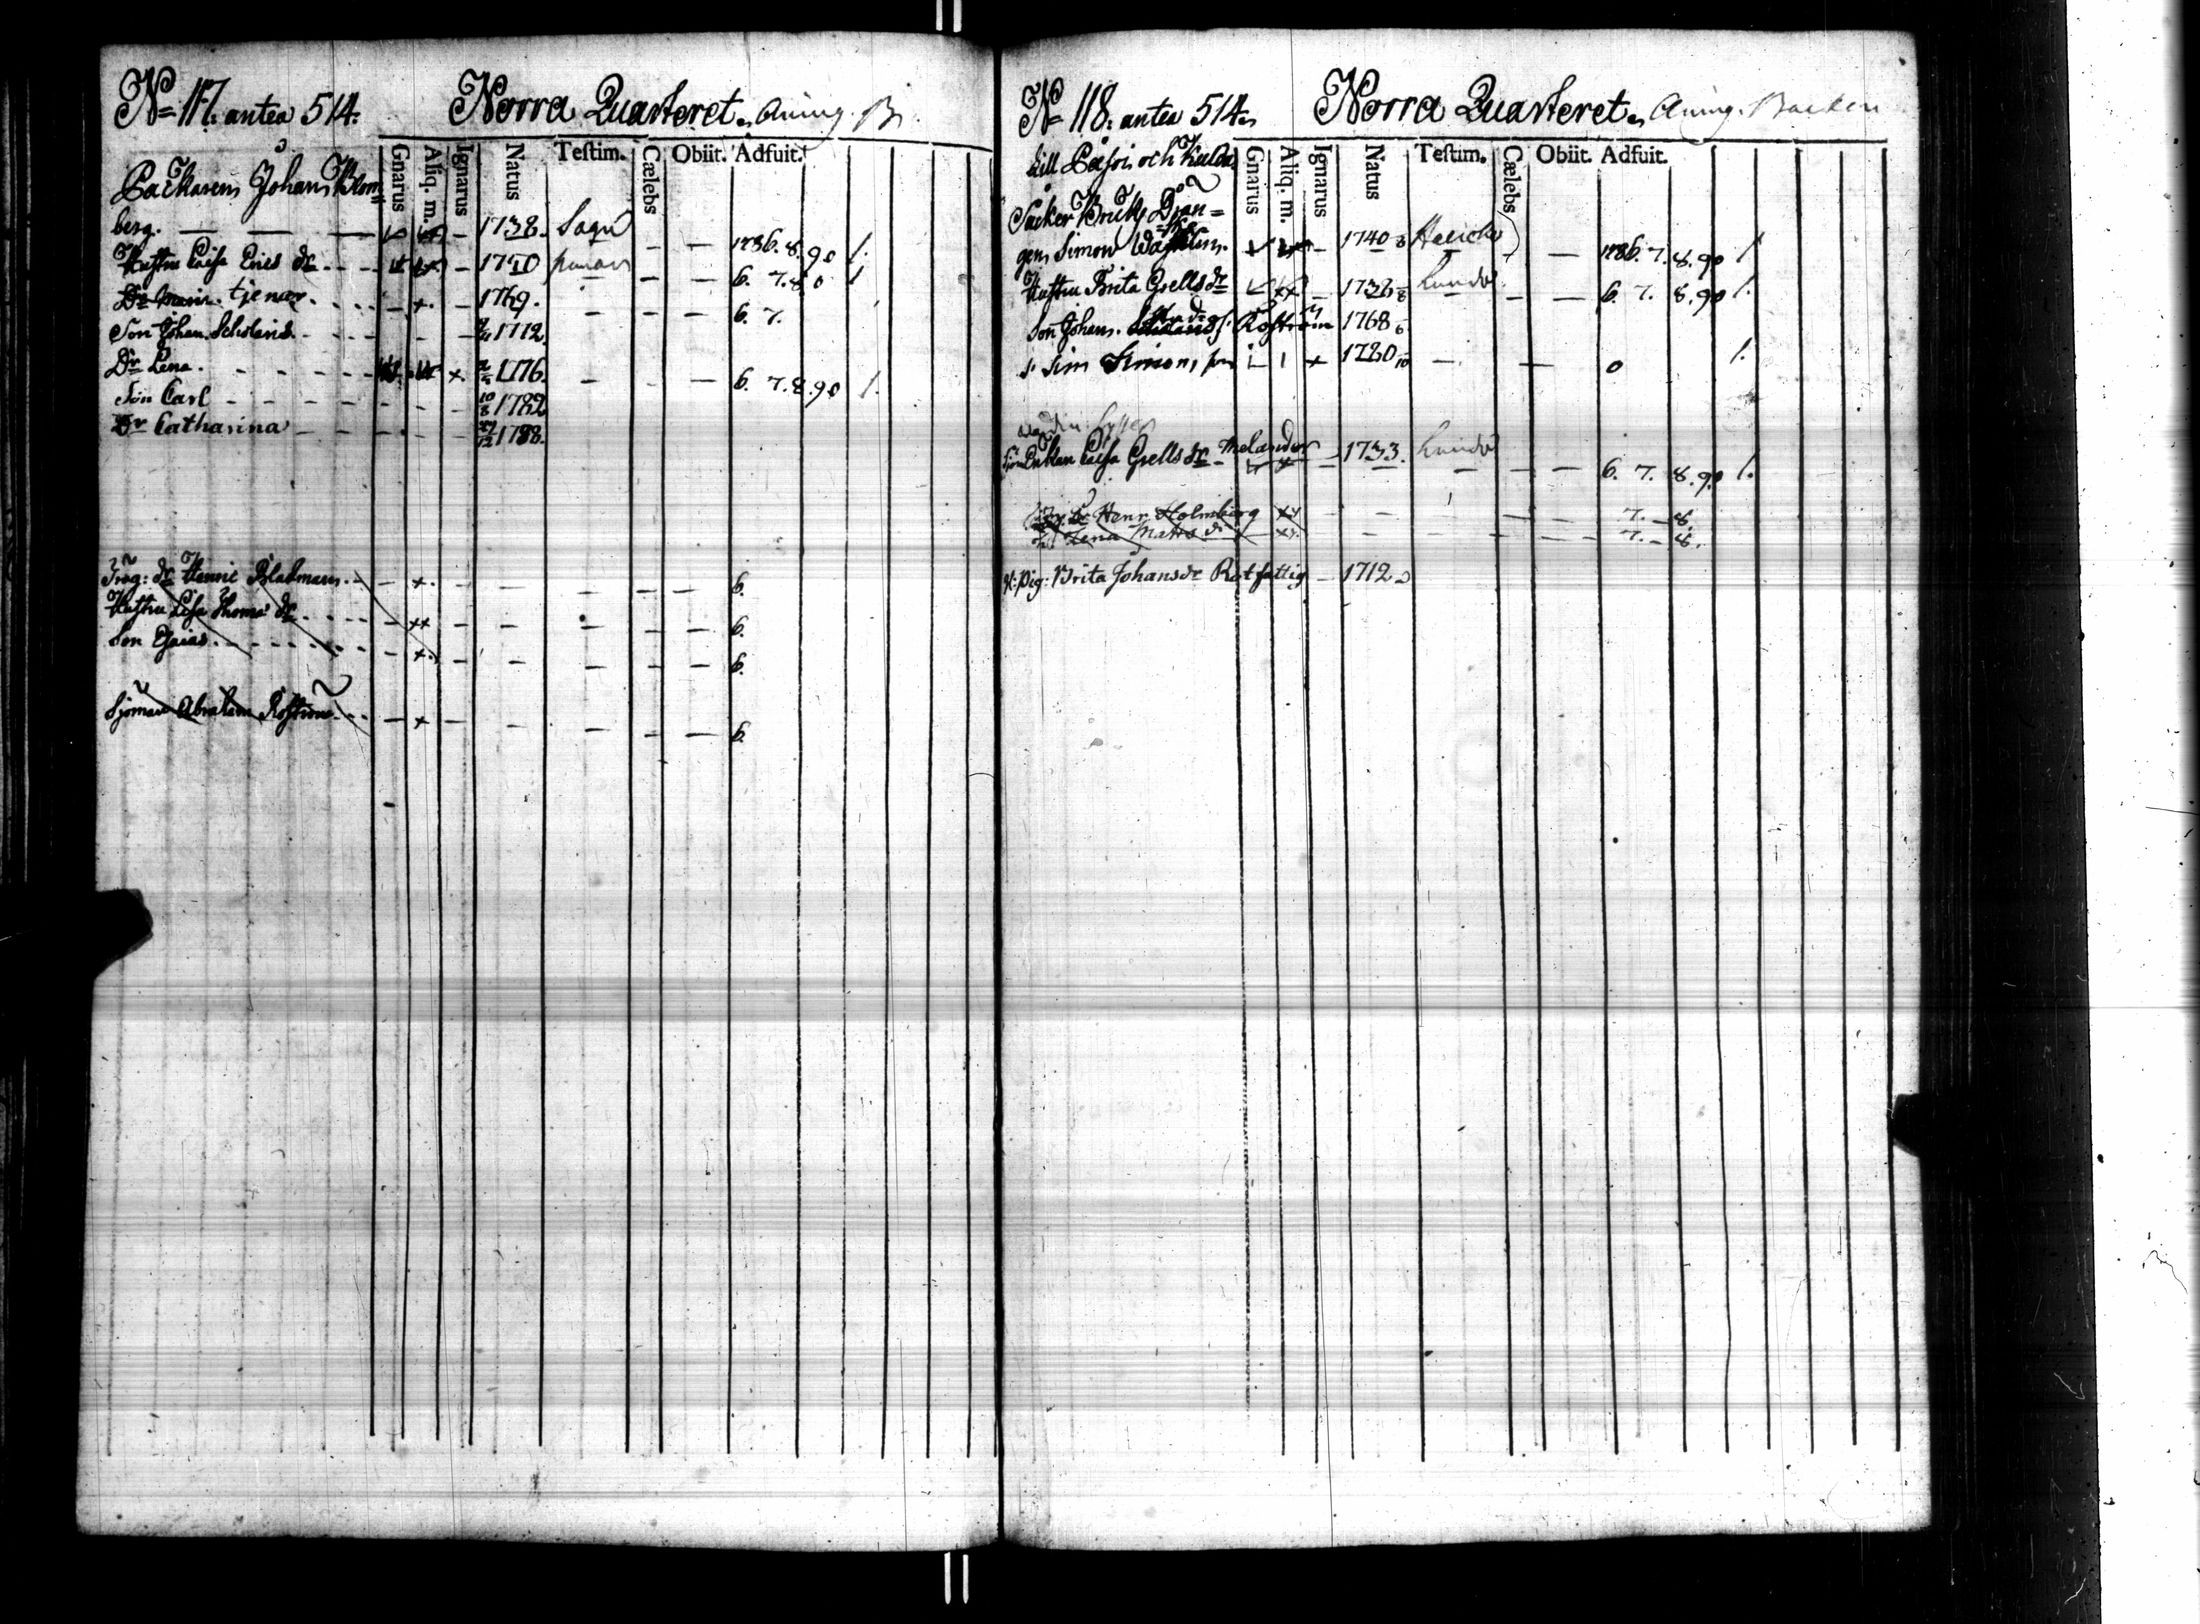 N= 117. antea 514. Norra Quarteret. Aning. B
Gnarus Aliq. m. Ignarus Natus Testim. Cælebs Obiit. Adfuit.
Packaren Johan Blom=
berg. — — — 1738. Sagu — — 1786. 8. 90 1.
Hustru Caisa Erics dr - - - 1740 — — 6. 7. 8. 0 1
Dr Maria. tjenar. - - - +. 1769. — — — 6. 7.
Son Johan. Scholaris. - - - 1772.
Dr Lena. - - - - + 1776. — — — 6. 7. 8. 90 1.
Son Carl - - - - 10/8 1782
Dr Catharina - - - 27/12 1788.
dr Henric Bladman. - - +. — — — — — 6.
Hustru Lisa Thomæ dr. - - - - ++ — — — — — 6.
Son Esaias. - - - - - +. — — — — — 6.
Sjöman Abraham Roström - - - + — — — — 6.
N= 118. antea 514. Norra Quarteret. Aning. Backen
Gnarus Aliq. m. Ignarus Natus Testim. Cælebs Obiit. Adfuit.
till och
Sacker Bruks Drän=
gen Simon 1740 — — 1786. 7. 8. 90 1
Hustru Brita Grells dr — 1738 Lundo — — 6. 7. 8. 90 1.
Son Johan. Roström 1768
s. Sim Simons + 1780 — — 0 1.
Enkan Caisa Grells dr - Melander — 1733. Lundo — — 6. 7. 8. 90 1.
Henr Holmberg — — — — — 7. - 8.
Lena Matts dr — — — — — 7. - 8.
pig: Brita Johans dr Rotfattig — 1712